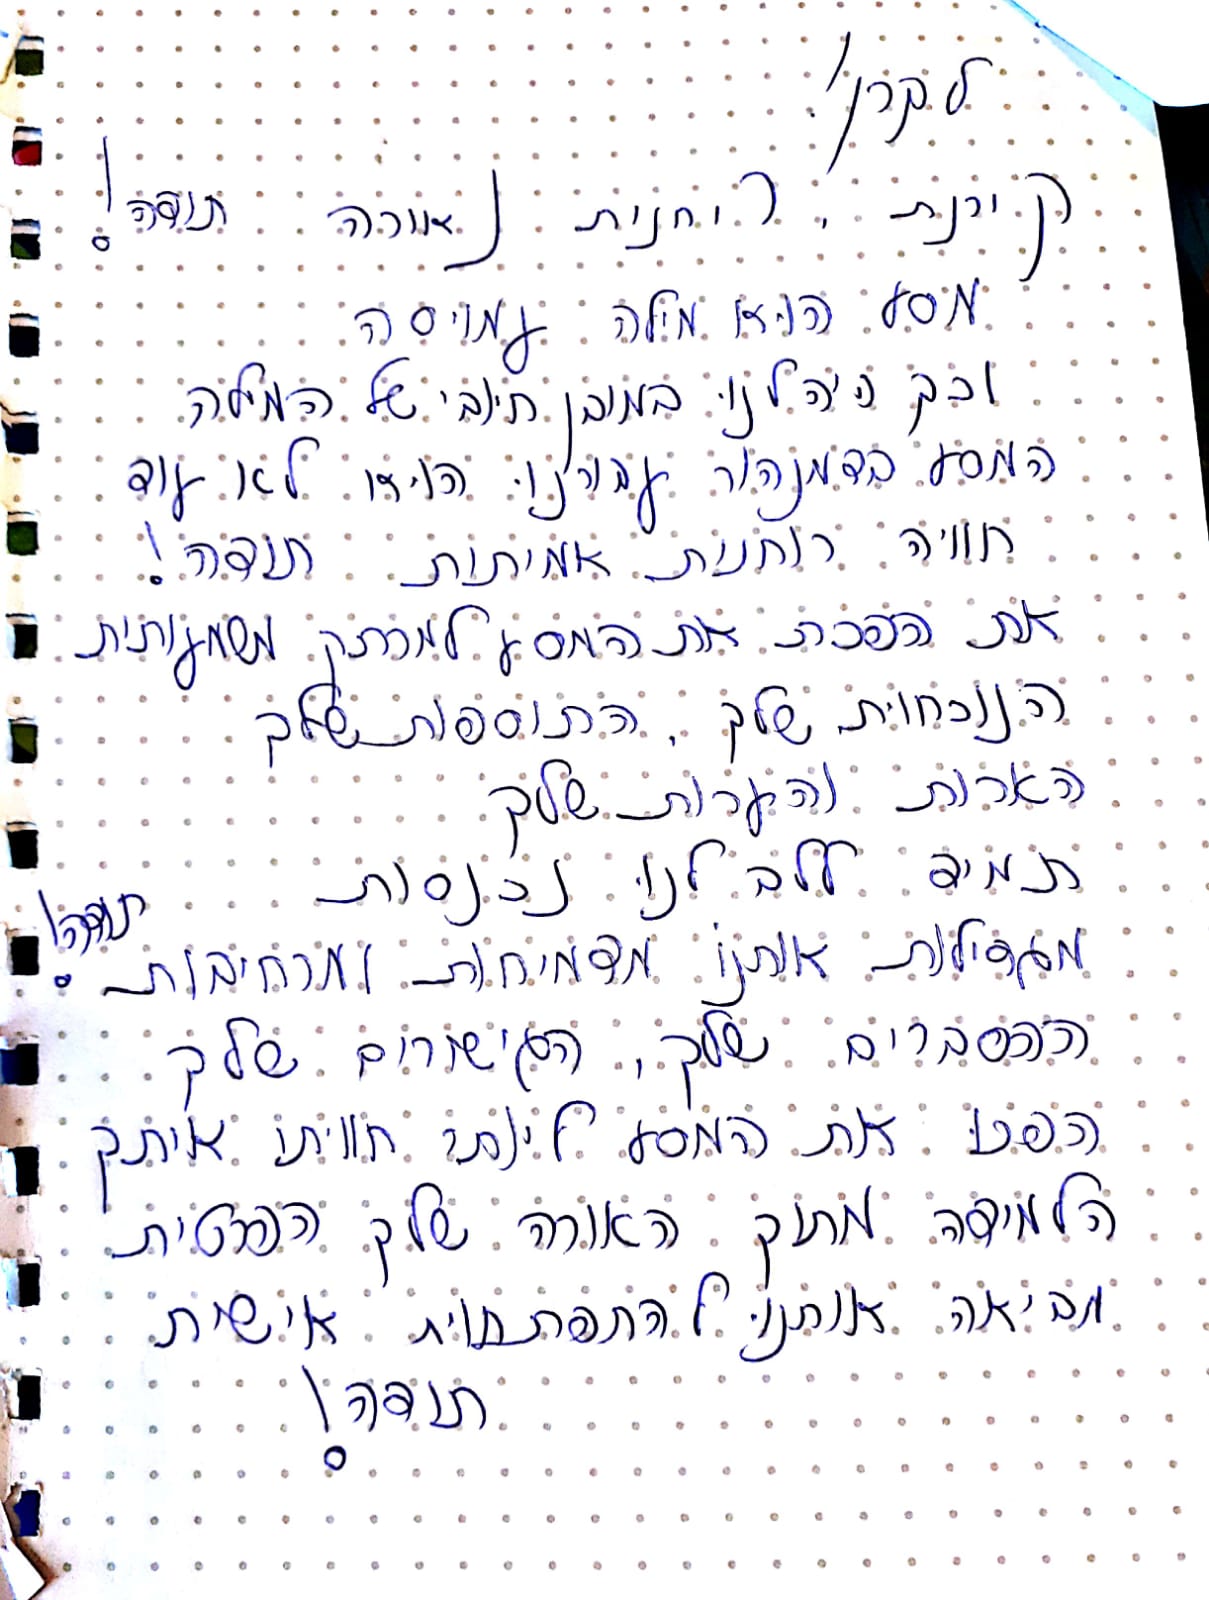 לקרן!
קירנת, רוחנית נאורה תודה!
מסע הויאו מילה עמויסה
וכך היה לנו במובן חיובי של המילה
המסע בדמנהור עבורנו הויאו לא עוד
חוויה רוחנית אמיתות תודה!
את הפכת את המסע למרתק משמעותית
הנוכחות שלך, התוספות שלך
הארות והערות שלך
תמיד ללב לנו נכנסות
מגדילות אותנו מצמיחות ומרחיבות תודה!
ההסברים שלך, הגישורים שלך
הפכו את המסע ליותר חוויתו איתך
הלמידה מתוך האורה שלך הפרטית
מביאה אותנו להתפתחות אישית
תודה!